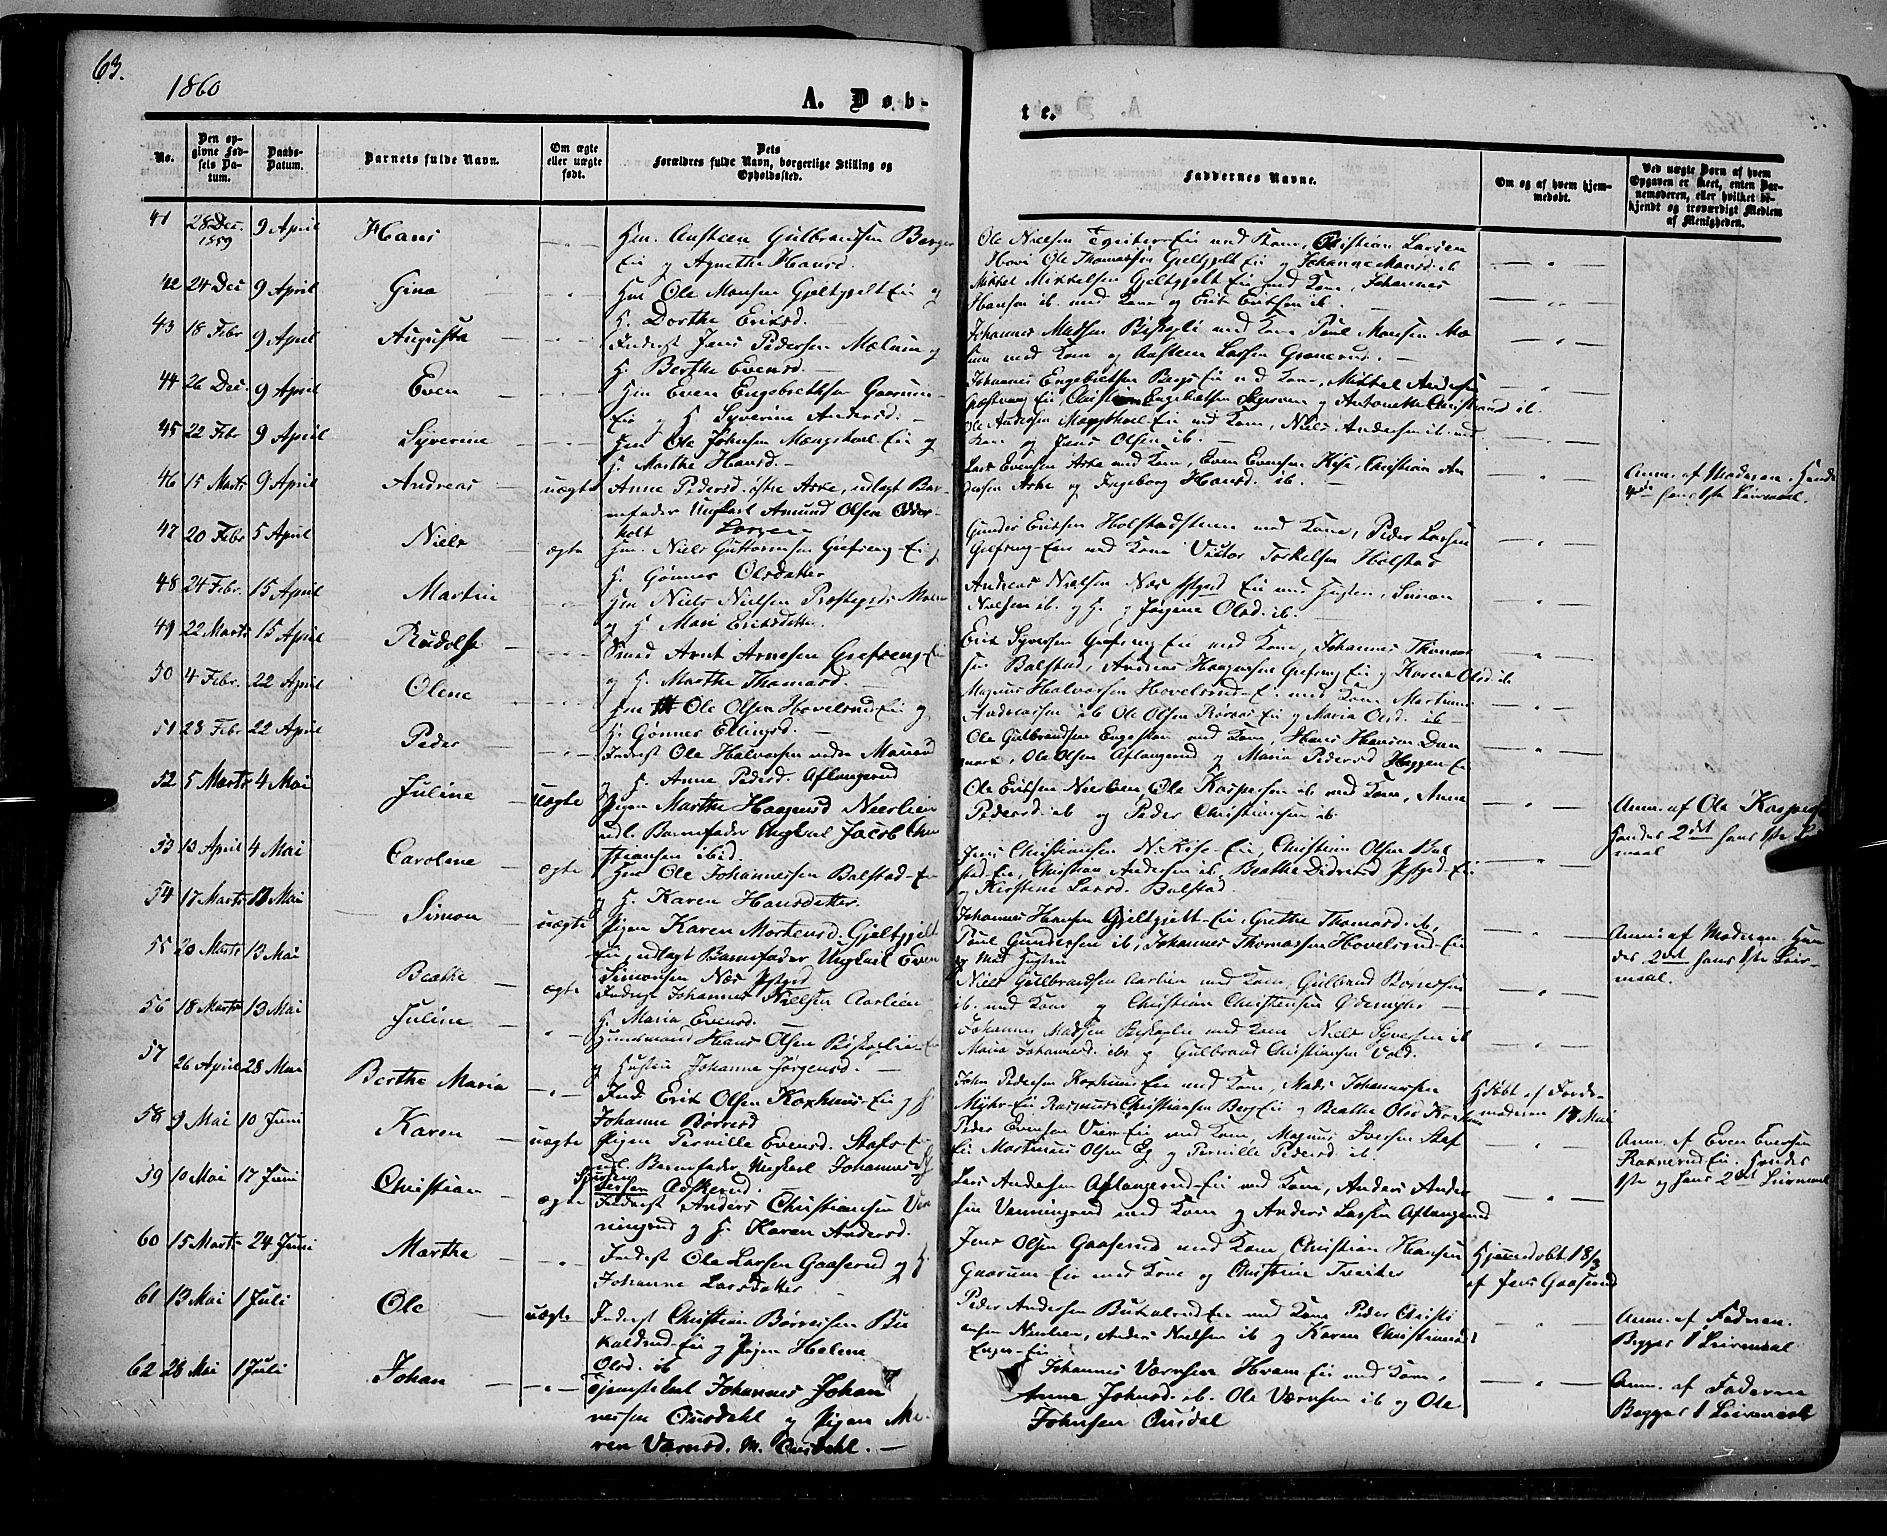 63.
1860
A. Døb-
te.
No.
Den op-
givne Fød-
sels Da-
tum.
Daabs-
Datum.
Barnets fulde Navn.
Om ægte
eller uægte
født.
Dets
Forældres fulde Navn, borgerlige Stilling og
Opholdssted.
Faddernes Navne.
Om og af hvem hjem-
medøbt.
Ved uægte Børn af hvem
Opgaven er skeet, enten Bar-
nemoderen, eller hvilket be-
kjendt og troværdigt Medlem
af Menigheden.
41 28 Dec. 1859 9 April Hans
Hm. Austeen Gulbrandsen Berger
Eie og Agnethe Hansd.
Ole Nielsen Eie med Kone, Christian Larsen
Hovi Ole Thomassen Gjeltgjelt Eie og Johanne Hansd. ib
42 24 Dec 9 April Gina
Hm Ole Monsen Gjeltgjelt Eie og
H. Dorthe Eriksd.
Mikkel Mikkelsen Gjeltgjelt Eie med Kone, Johannes
Hansen ib. med Kone og Erik Eriksen ib
43 18 Febr 9 April Augusta
Inderst Jens Pedersen Mælum og
H. Berthe Evensd.
Johannes Madsen Biskopli med Kone Paul Monsen Mæ
lum med Kone og Austeen Larsen Granerud.
44 26 Dec. 9 April Even
Hm Even Engebrethsen Gaarum
Eie og H. Syverine Andersd.
Johannes Engebretsen Bergs Eie med Kone, Mikkel Andersen
Eie, Christian Engebretsen og Antonette Christiansd ib.
45 22 Febr 9 April Syverine
Hm Ole Johnsen Mængshoel Eie og
H. Marthe Hansd.
Ole Andersen Mængshoel Eie med Kone, Niels Andersen ib. med
Kone og Jens Olsen ib.
46 15 Marts 9 April Andreas uægte
Anne Pedersd. østre Aske, udlagt Bar-
nefader Ungkarl Amund Olsen Odder-
holt
Lars Evensen Aske med Kone, Even Evensen Kise, Christian An
dersen Aske og Ingeborg Hansd. ib.
Anm. af Moderen. Hendes
4de hans 1ste Leiermaal.
47 20 Febr 5 April Niels ægte
Hm. Niels Guttormsen Grefseng-Eie og
H. Gønner Olsdatter
Gunder Eriksen Holstadsteen med Kone, Peder Larsen
Grefseng-Eie med Kone Victor Torkelsen Holstad
48 24 Febr. 15 April Martin
Hm Niels Nielsen Præstegrds
og H. Mari Eriksdatter.
Andreas Nielsen Næs Pstgrd Eie med Hustru, Simon
Nielsen ib. og H. og Jørgine Olsd. ib.
49 22 Marts 15 April Rudolf
Smed Arnt Arnesen Grefseng-Eie
og H. Marthe Thomasd.
Erik Syversen Grefseng Eie med Kone, Johannes Thomas
sen Balstad, Andreas Haagensen Grefseng Eie og Karen Olsd ib
50 4 Febr. 22 April Olene
Hm Ole Olsen Hovelsrud Eie og
H. Gønner Ellingsd.
Magnus Halvorsen Hovelsrud-Ei med Kone Martinus
Andreassen ib Ole Olsen Eie og Maria Olsd. ib
51 28 Febr 22 April Peder
Inderst Ole Halvorsen
og H. Anne Pedersd. Aflangerud
Ole Gulbrandsen Engeskou med Kone, Hans Hansen Dan
mark, Ole Olsen Aflangerud og Maria Pedersd Haggen Ei
52 5 Marts 4 Mai Juline uægte
Pigen Marthe Haagensd Neerlien
udl. Barnefader Ungkarl Jacob Chri
stiansen ibid.
Ole Eriksen Neerlien, Ole Kaspersen ib med Kone, Anne
Pedersd. ib og Peder Christiansen ib
Anm. af Ole Kaspersen
Hendes 2det hans 1ste Leier
maal
53 13 April 4 Mai Carolene ægte
Hm Ole Johannessen Balstad-Eie
og H. Karen Hansdatter
Jens Christiansen N. Kise-Eie, Christian Olsen Bal
stad-Eie, Christian Andersen ib, Beathe Didriksd Pstgrd-Eie
og Kirstine Larsd. Balstad.
54 17 Marts 17 Mai Simon uægte
Pigen Karen Mortensd. Gjeltgjelt
Eie, udlagt Barnefader Ungkarl Even
Simonsen Næs Pstgrd
Johannes Hansen Gjeltgjelt-Eie, Grethe Thomasd. ib,
Paul Gundersen ib, Johannes Thomassen Hovelsrud-Eie
og Mod Hustru
Anm: af Moderen. Hen
des 2det hans 1ste Leier-
maal.
55 20 Marts 13 Mai Beathe ægte
Inderst Johannes Nielsen Aarlien
H. Maria Evensd.
Niels Gulbrandsen Aarlien med Kone, Gulbrand Børresen
ib. med Kone og Christian Christensen
56 18 Marts 13 Mai Juline
Huusmand Hans Olsen Biskoplie-Eie
og Hustru Johanne Jørgensd.
Johannes Madsen Biskoplie med Kone, Niels Syversen ib
Maria Johannesd. ib. og Gulbrand Christiansen Vold.
57 26 April 28 Mai Berthe Maria
Ind Erik Olsen Korshuus-Eie og H
Johanne Børresd
John Pedersen Korshuus Eie med Kone, Mads Johannessen
Myhr-Eie Rasmus Christiansen Berg Eie og Beathe Olsd
Hjdøbt af Jorde-
moderen 17 Mai
58 9 Mai 10 Juni Karen uægte
Pigen Pernille Evensd. Stafs-Eie
udl. Barnefader Ungkarl Johannes
Askerud.
Peder Evensen Vien-Eie med Kone, Magnus Iversen Staf
Ei Martinus Olsen Eg og Pernille Pedersd ib
Anm. af Even Evensen
Ravnerud Eie. Hendes
1ste og hans 2det Leiermaal
59 10 Mai 17 Juni Christian ægte
Inderst Anders Christiansen Ven
ningrud og H. Karen Andersd.
Lars Andersen Aflangerud-Eie med Kone, Anders Ander
sen Venningrud med Kone og Anders Larsen Aflangerud
60 15 Marts 24 Juni Marthe
Inderst Ole Larsen Gaaserud og H.
Johanne Larsdatter
Jens Olsen Gaaserud med Kone, Christian Hansen
Gaarum-Eie med Kone og Christine
Hjemmedøbt 18/3
af Jens Gaaserud
61 13 Mai 1 Juli Ole uægte
Inderst Christian Børresen Bu
kalsrud-Eie og Pigen Helene
Olsd. ib
Peder Andersen Bukalsrud Eie med Kone Peder Christi
ansen, Anders Nielsen ib og Karen Christiansd
Enger-Eie
Anm. af Faderen.
Begges 1 Leiermaal
62 28 Mai 1 Juli Johan
Tjenestekarl Johannes Johan
nessen Ousdahl og Pigen Ma-
ren Værnsd. M. Ousdahl.
Johannes Værnsen Hvam Eie med Kone,
Anne Johnsd. ib. Ole Værnsen ib og Ole
Johnsen Ousdal
Anm. af Faderen
Begges 1 Leiermaal